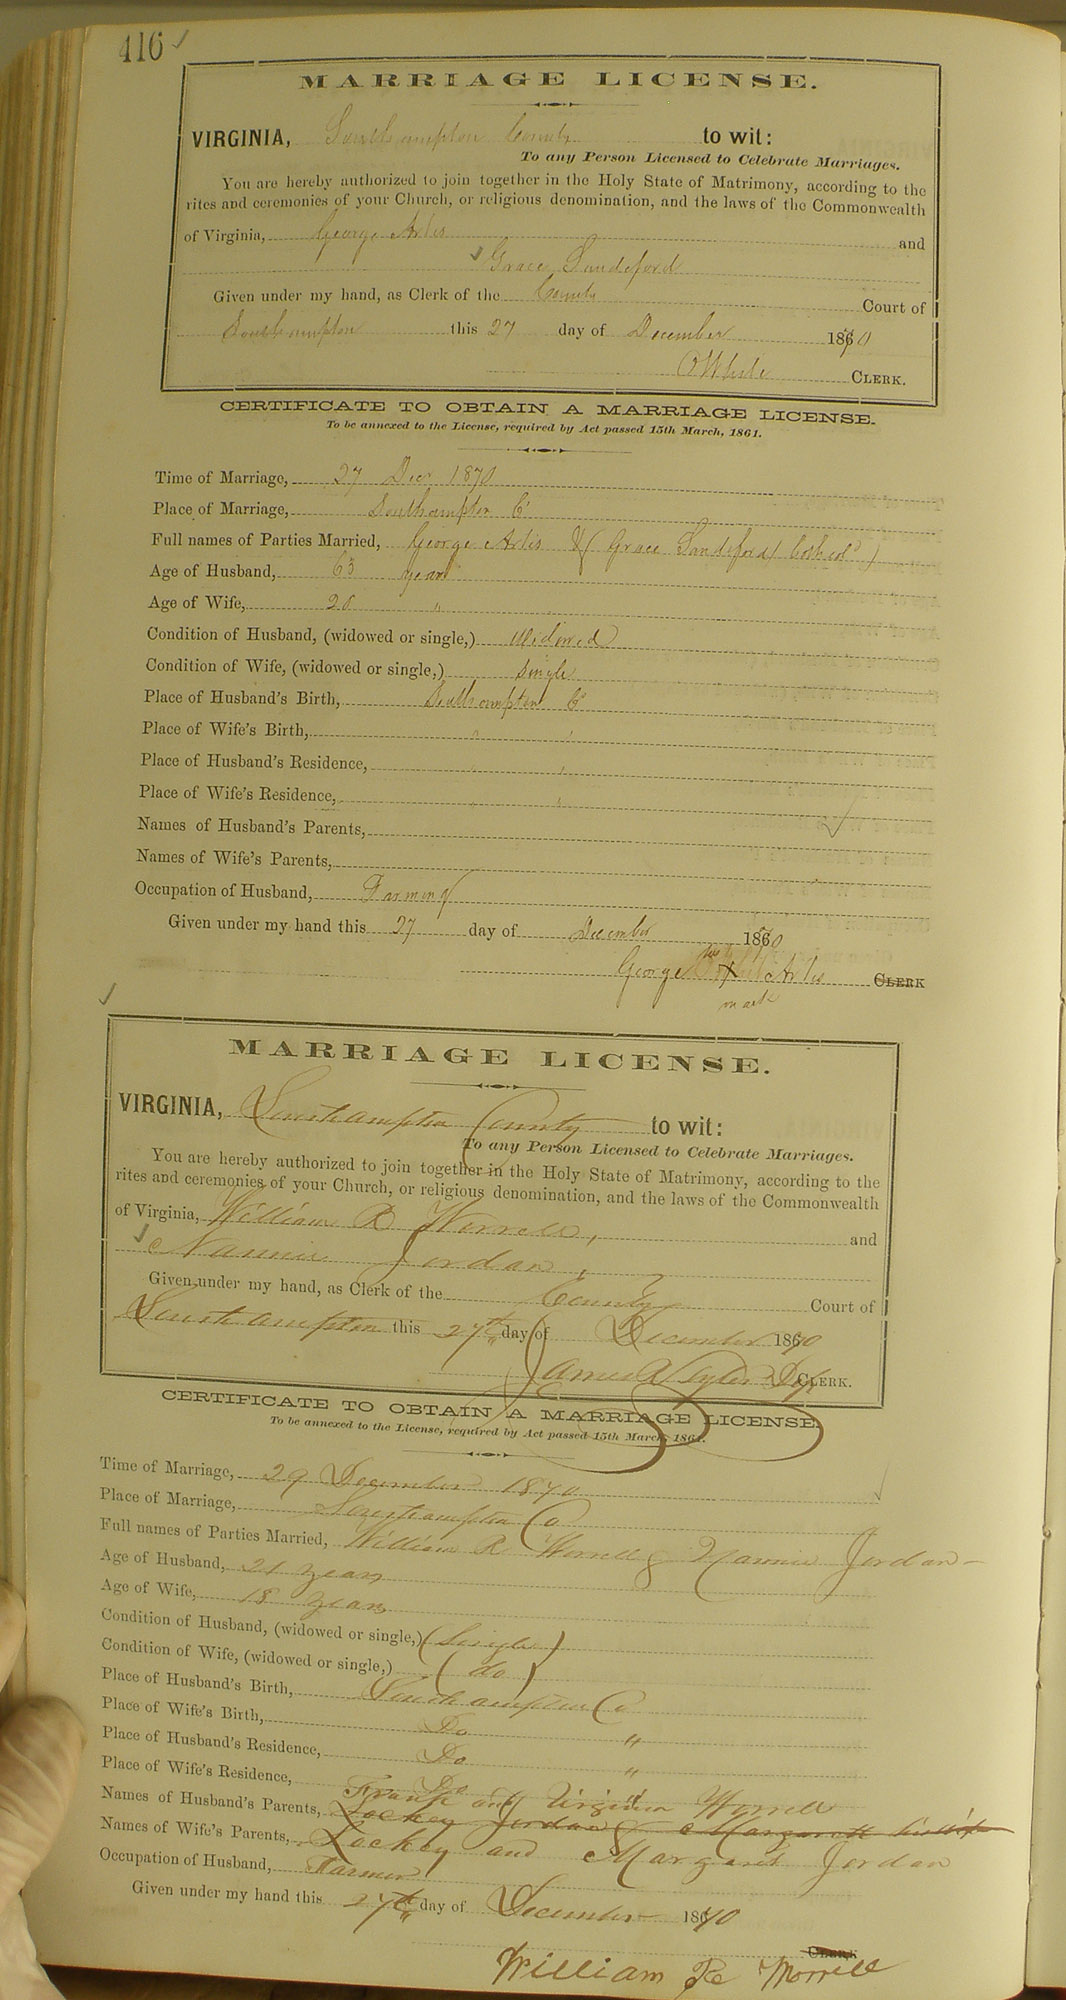 416 ✓
MARRIAGE LICENSE.
VIRGINIA, Southampton County to wit:
To any Person Licensed to Celebrate Marriages.
You are hereby authorized to join together in the Holy State of Matrimony, according to the
rites and ceremonies of your Church, or religious denomination, and the laws of the Commonwealth
of Virginia, George Artis and
✓ Grace Sandeford
Given under my hand, as Clerk of the County Court of
Southampton this 27 day of December 1870
CLERK.
CERTIFICATE TO OBTAIN A MARRIAGE LICENSE.
To be annexed to the License, required by Act passed 15th March, 1861.
Time of Marriage, 27 Decr 1870
Place of Marriage, Southampton Co
Full names of Parties Married, George Artis & (Grace Sandeford) both cold)
Age of Husband, 63 years
Age of Wife, 28 "
Condition of Husband, (widowed or single,) widowed
Condition of Wife, (widowed or single,) single
Place of Husband's Birth, Southampton Co
Place of Wife's Birth, " "
Place of Husband's Residence, " "
Place of Wife's Residence, " "
Names of Husband's Parents, ✓
Names of Wife's Parents,
Occupation of Husband, Farming
Given under my hand this 27 day of December 1870
George his X mark Artis CLERK
✓
MARRIAGE LICENSE.
VIRGINIA, Southampton County to wit:
To any Person Licensed to Celebrate Marriages.
You are hereby authorized to join together in the Holy State of Matrimony, according to the
rites and ceremonies of your Church, or religious denomination, and the laws of the Commonwealth
of Virginia, William R Worrell, and
✓ Nannie Jordan,
Given under my hand, as Clerk of the County Court of
Southampton this 27th day of December 1870
James R Tyler Dep CLERK.
CERTIFICATE TO OBTAIN A MARRIAGE LICENSE.
To be annexed to the License, required by Act passed 15th March, 1861.
Time of Marriage, 29 December 1870
Place of Marriage, Southampton Co
Full names of Parties Married, William R Worrell & Nannie Jordan
Age of Husband, 21 years
Age of Wife, 18 years
Condition of Husband, (widowed or single,) (Single)
Condition of Wife, (widowed or single,) (do)
Place of Husband's Birth, Southampton Co
Place of Wife's Birth, Do "
Place of Husband's Residence, Do "
Place of Wife's Residence, Do "
Frank and Virginia Worrell
Names of Husband's Parents, Lockey Jordan & Margarett
Names of Wife's Parents, Lockey and Margaret Jordan
Occupation of Husband, Farmer
Given under my hand this 27th day of December 1870
CLERK
William R Worrell